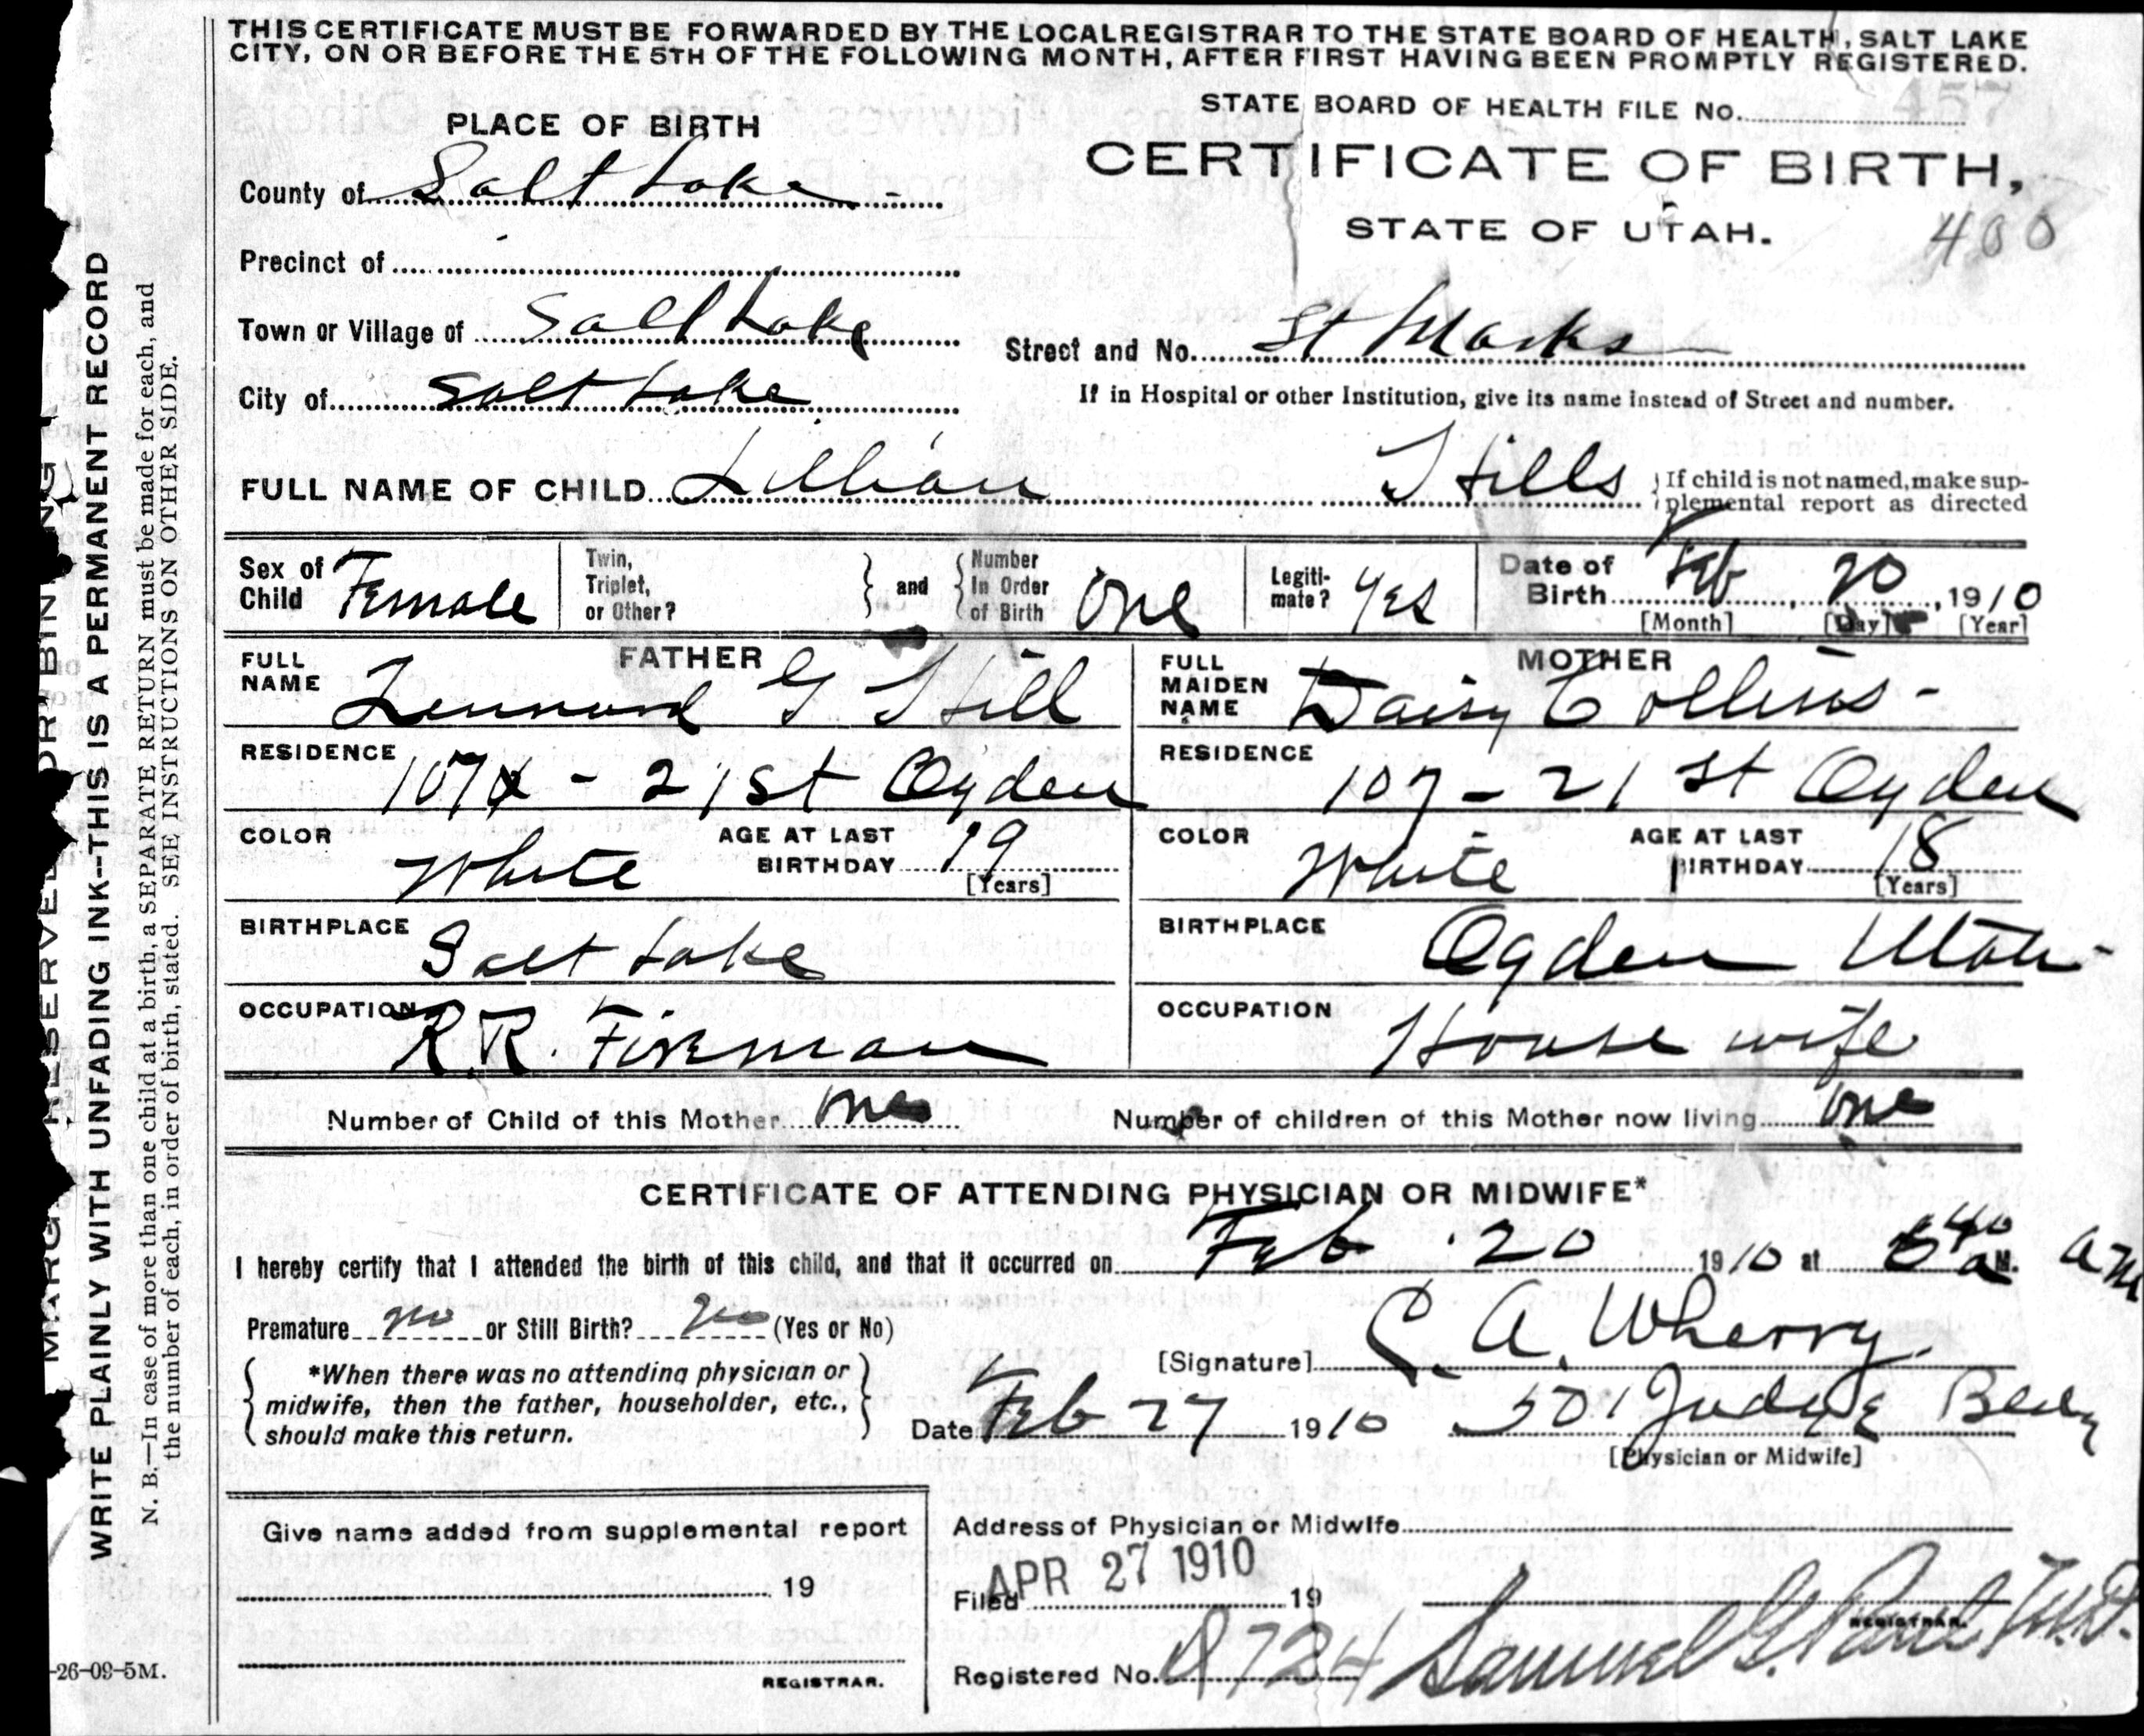 THIS CERTIFICATE MUST BE FORWARDED BY THE LOCAL REGISTRAR TO THE STATE BOARD OF HEALTH, SALT LAKE
CITY, ON OR BEFORE THE 5TH OF THE FOLLOWING MONTH, AFTER FIRST HAVING BEEN PROMPTLY REGISTERED.
STATE BOARD OF HEALTH FILE No. 457
PLACE OF BIRTH
CERTIFICATE OF BIRTH,
STATE OF UTAH.
400
County of Salt Lake -
Precinct of
Town or Village of Salt Lake
Street and No. St Marks
City of Salt Lake
If in Hospital or other Institution, give its name instead of Street and number.
FULL NAME OF CHILD Lillian Hills
If child is not named, make sup-
plemental report as directed
Sex of Child Female
Twin, Triplet, or Other?
and
Number In Order of Birth One
Legiti-mate? Yes
Date of Birth Feb 20, 1910
[Month] [Day] [Year]
FATHER
FULL NAME Lennard G Hill
RESIDENCE 107 - 21 st Ogden
COLOR White
AGE AT LAST BIRTHDAY 19
[Years]
BIRTHPLACE Salt Lake
OCCUPATION R.R. Fireman
MOTHER
FULL MAIDEN NAME Daisy Collins -
RESIDENCE 107 - 21 st Ogden
COLOR White
AGE AT LAST BIRTHDAY 18
[Years]
BIRTHPLACE Ogden Utah -
OCCUPATION House wife
Number of Child of this Mother One
Number of children of this Mother now living One
CERTIFICATE OF ATTENDING PHYSICIAN OR MIDWIFE*
I hereby certify that I attended the birth of this child, and that it occurred on Feb 20 1910 at 40 a M. am
Premature no or Still Birth? no (Yes or No)
[Signature] C. A. Wherry.
*When there was no attending physician or
midwife, then the father, householder, etc.,
should make this return.
Date Feb 27 1910
501 Judge
[Physician or Midwife]
Give name added from supplemental report
19
REGISTRAR.
Address of Physician or Midwife
Filed APR 27 1910 19
REGISTRAR.
Registered No. 9724
Samuel G. Paul M.D.
MARG RESERVE FOR BINDING
WRITE PLAINLY WITH UNFADING INK--THIS IS A PERMANENT RECORD
N. B.—In case of more than one child at a birth, a SEPARATE RETURN must be made for each, and
the number of each, in order of birth, stated. SEE INSTRUCTIONS ON OTHER SIDE.
-26-09-5M.